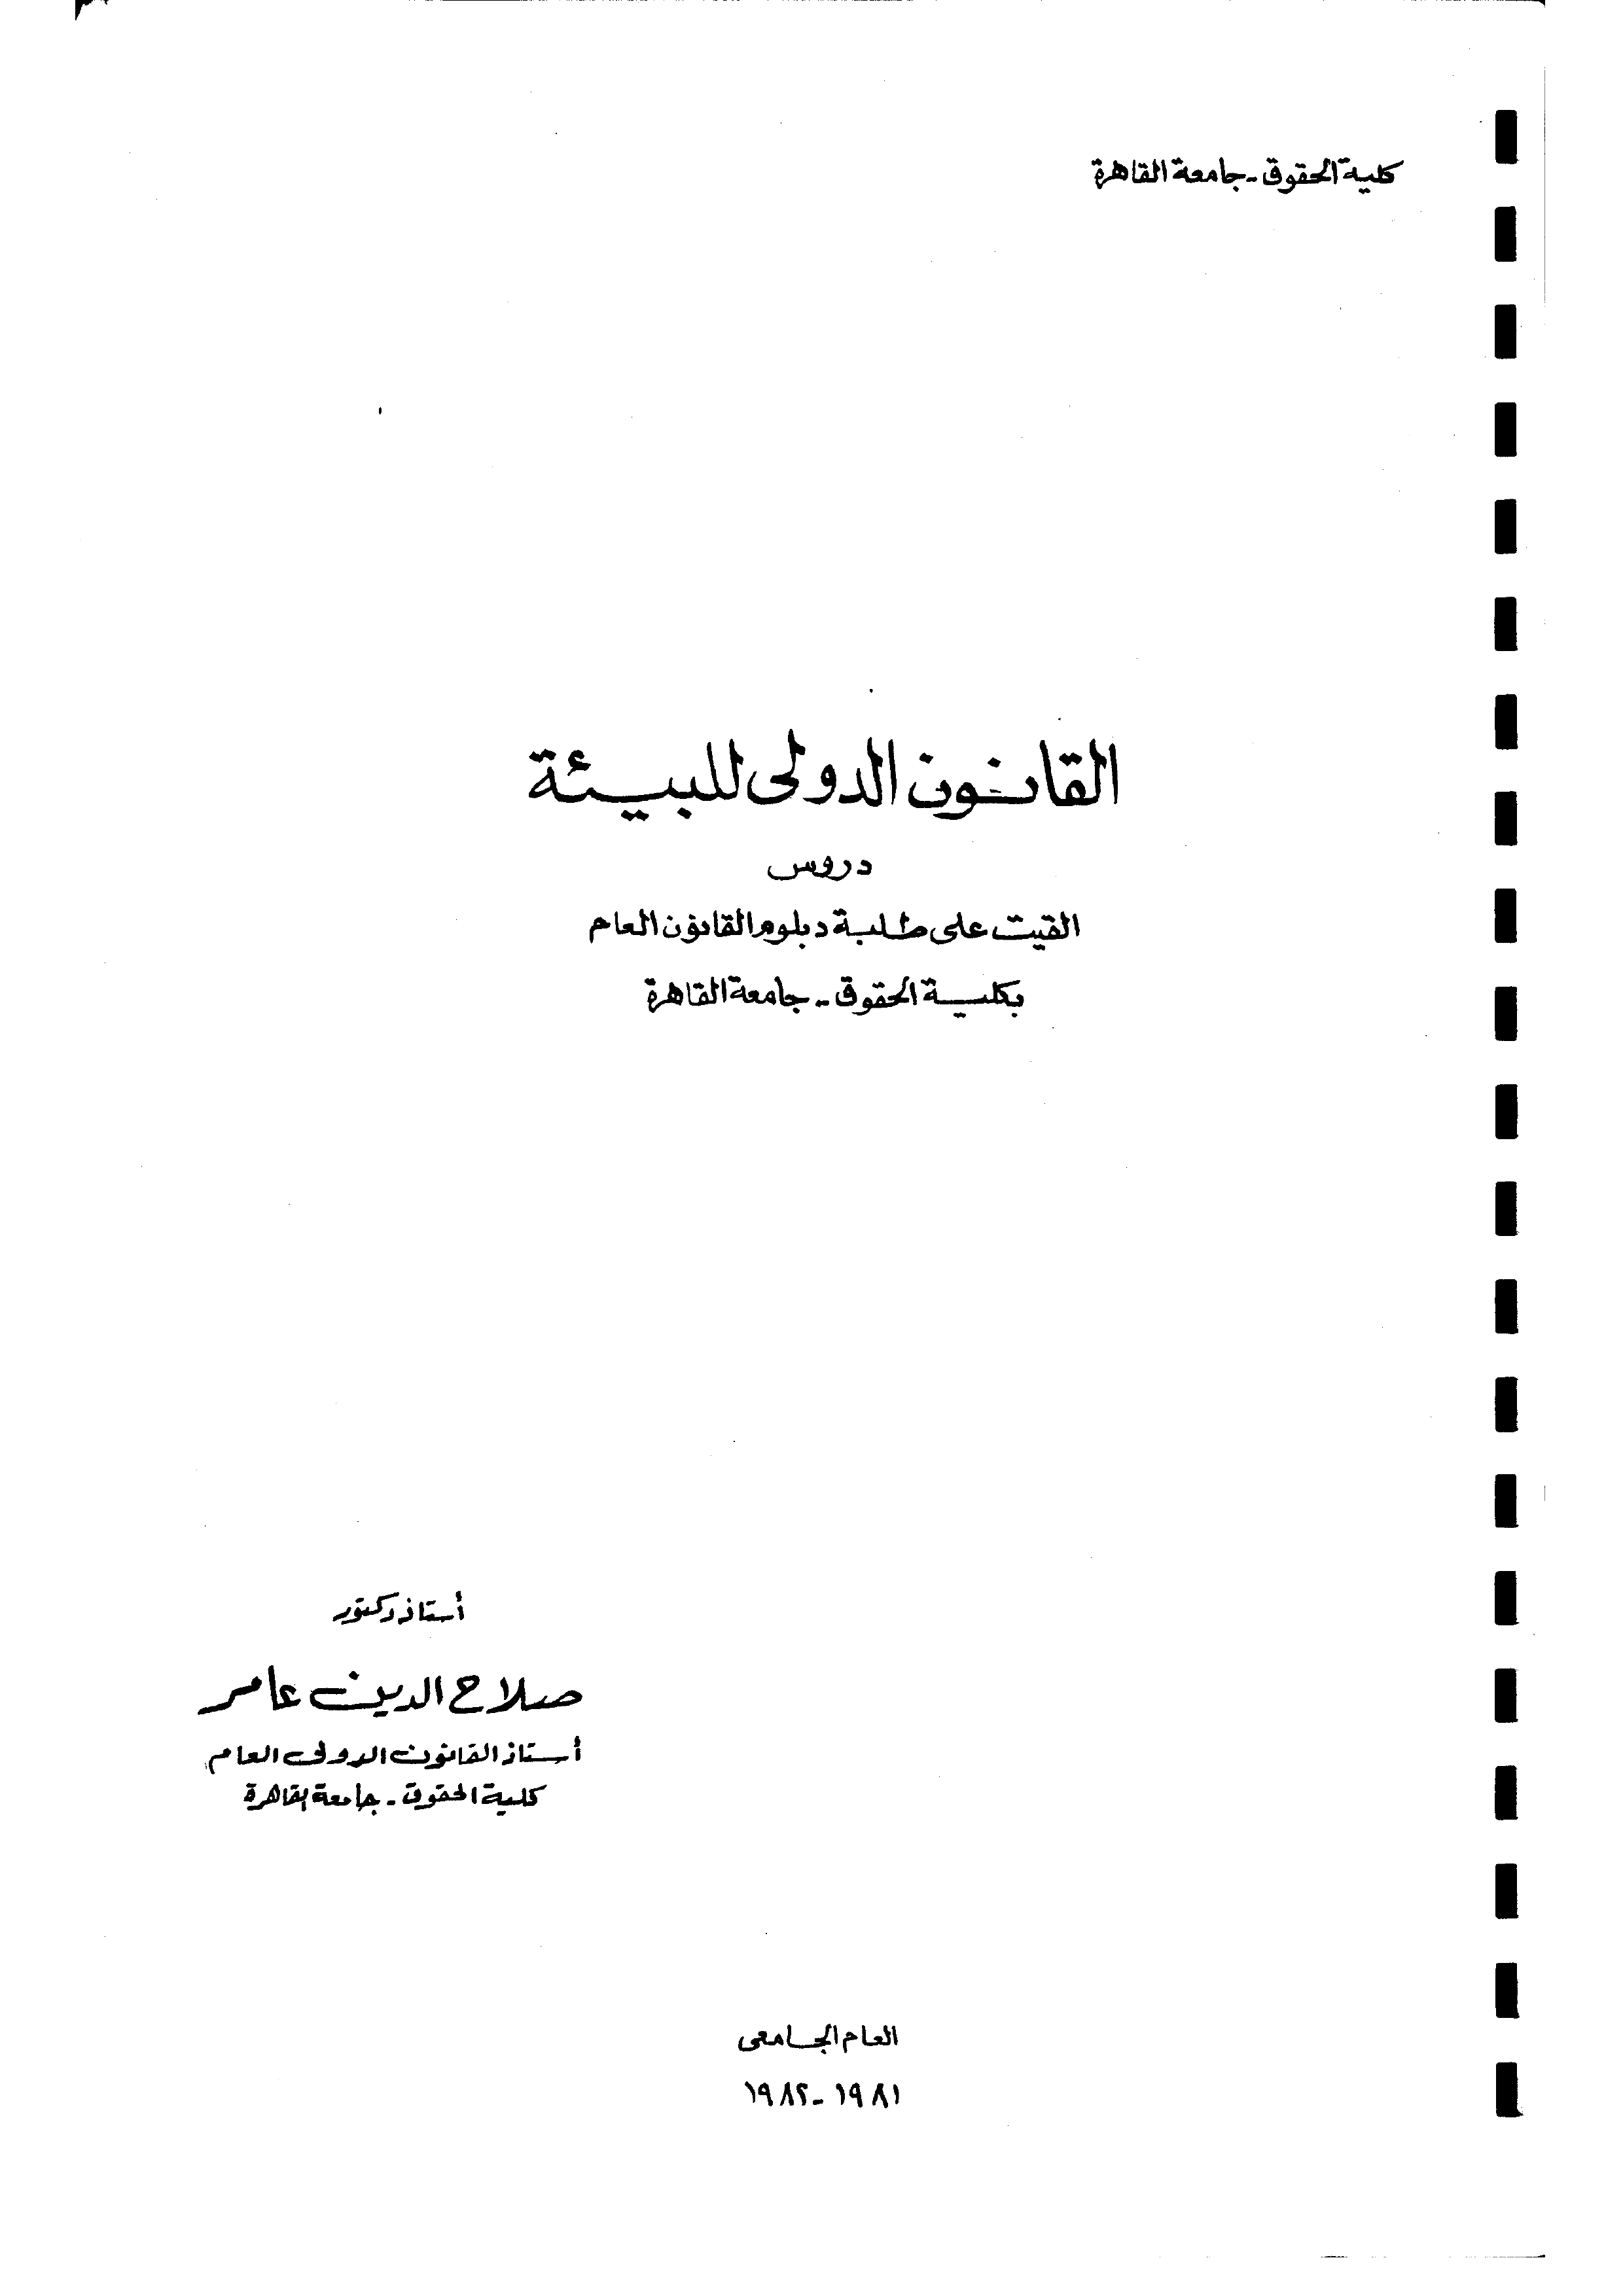 كلية الحقوق - جامعة القاهرة
القانون الدولى للبيئة
دروس
القيت على طلبة دبلوم القانون العام
بكلية الحقوق - جامعة القاهرة
أستاذ دكتور
صلاح الدين عامر
أستاذ القانون الدولى العام
كلية الحقوق - جامعة القاهرة
العام الجامعى
١٩٨١ - ١٩٨٢